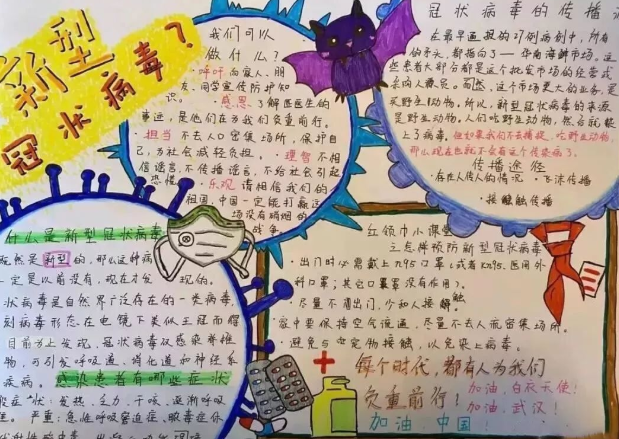 新型
冠状病毒?
我们可以
做什么?
·呼吁向家人、朋
友、同学宣传防护知
识。·感恩了解医医生的
事迹,是他们在为我们负重前行。
·担当 不去人口密集场所,保护自
己,为社会减轻负担。·理智不相
信谣言,不传播谣言,不给社会引起
恐慌。·乐观 请相信我们的
祖国,中国一定能打赢这
场没有硝烟的
战争。
冠状病毒的传播
在最早通报的27例病例中,所有
的矛头都指向了——华南海鲜市场。这
些患者大部分都是这个批发市场的经营或
采购人员。而然,这个市场更大的业务,是
买野生动物。所以,新型冠状病毒的来源
是野生动物,人们吃野生动物,然后就染
上了病毒。但如果我们不去捕捉、吃野生动物,
那么现在也就不会有这个传染病了。
传播途径
·存在人传人的情况 ·飞沫传播
·接触传播
什么是新型冠状病毒
既然是新型的,那么这种病
一定是以前没有,现在才发现的。
状病毒是自然界广泛存在的一类病毒,
刻病毒形态在电镜下类似王冠而
目前为止发现,冠状病毒仅感染脊椎
物,可引发呼吸道、消化道和神经系
疾病。感染患者有哪些症状
症状:发热、乏力、干咳、逐渐呼吸
严重:急性呼吸窘迫症、脓毒症休
红领巾小课堂
三点牌预防新型冠状病毒
·出门时必需戴上n95口罩(或者Kn95、医用外
科口罩;其它口罩暂没有作用)。
·尽量不需出门,少和人接触
家中要保持空气流通,尽量不去人流密集场所。
·避免与宠物接触,以免染上病毒。
每个时代,都有人为我们
负重前行!
加油,白衣天使!
加油,武汉!
加油,中国!